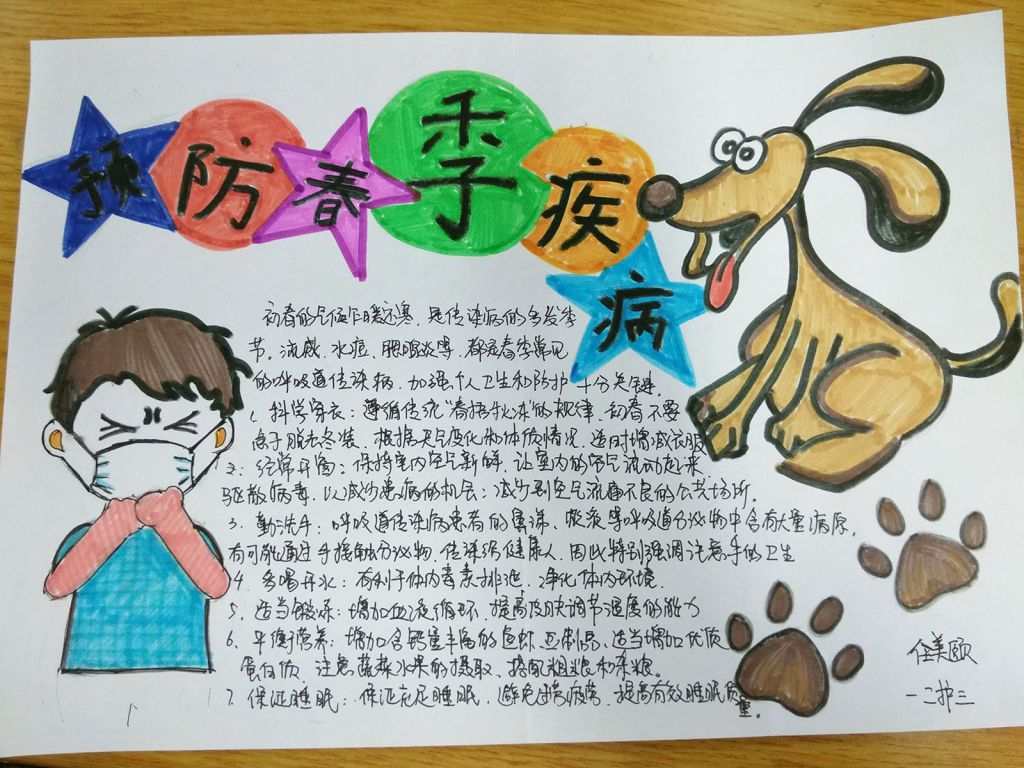 预防春季疾病
初春的气候乍暖还寒，是传染病的多发季
节。流感、水痘、腮腺炎等，都是春季常见
的呼吸道传染病，加强个人卫生和防护十分关键。
1、科学穿衣：遵循传统“春捂秋冻”的规律，初春不要
急于脱去冬装，根据天气变化和体质情况，适时增减衣服
2：经常开窗：保持室内空气新鲜，让室内的空气流动起来
驱散病毒，以减少患病的机会；减少到空气流通不良的公共场所。
3、勤洗手：呼吸道传染病患者的鼻涕、痰液等呼吸道分泌物中含有大量病原，
有可能通过手接触分泌物，传染给健康人，因此特别强调注意手的卫生
4、多喝开水：有利于体内毒素排泄，净化体内环境。
5、适当锻炼：增加血液循环，提高皮肤调节湿度的能力
6、平衡营养：增加含钙量丰富的鱼虾、豆制品，适当增加优质
蛋白质，注意蔬菜水果的摄取、搭配粗粮和杂粮。
7、保证睡眠：保证充足睡眠，避免过劳疲劳，提高有效睡眠质量。
任美颐
一二护三